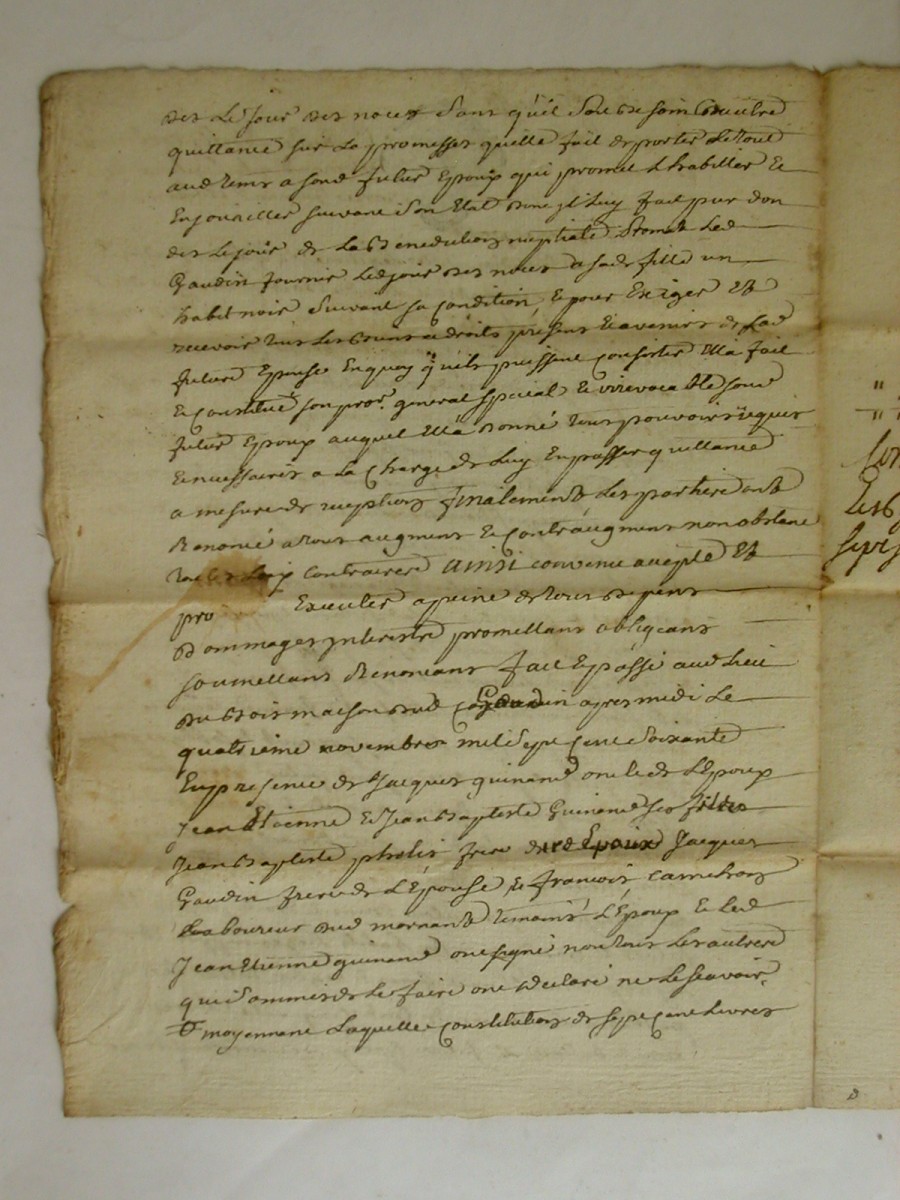 des le Jour des noces sans qu'il soit besoin d'autre
quittance sur la promesse quelle fait de porter le tout
aud tems a sond futur Epoux qui promet l habiller et
Enjoailler suivant son Etat dont jl luy fait pur don
des le jour de la Benediction nuptiale Promet led
Gaudin fournir led jour des noces a sad fille un
habit noir suivant sa condition, et pour Exiger et
recevoir tous les biens et droits présens et avenirs de sad
future Epouse En quoy qu'ils puissent consister Ella fait
et constitué son pror. general special et irrevocable sond
futur Epoux auquel Ella donné tous pouvoirs requis
et necessaires a la charge de luy En passer quittance
a mesure de reception finalement les parties ont
Renoncé a tous augment et contraugment nonobstant
toutes loix contraires ainsi convenu accepté et
pro Executer a peine de tous depens
dommages jnterests promettans obligeans
soumettans Renonçans fait et passé aud lieu
du Bois maison dud Gaudin apres midi le
quatrième novembre mil sept cent soixante
En presence de Jacques guinand oncle de l'Epoux
Jean Etienne et Jean Baptiste Guinand ses fils
Jean Baptiste frere de Epoux Jacques
Gaudin frere de l'Épouse et francois
laboureur dud mornant temoins l'Époux et led
Jean Etienne guinand ont signé non tous les autres
qui sommés de le faire ont declaré ne le sçavoir,
moyennant laquelle constitution de sept cent livres